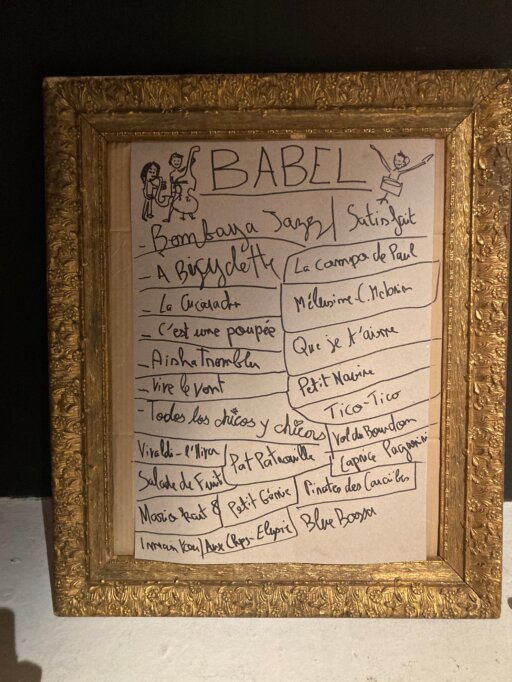 BABEL
- Bombaya Jazz / Satisfait
- A Bicyclette
La campa de Paul
- La Cucaracha
Mélusine - C. Melosin
- C'est une poupée
Que je t'aime
- Aisha Tromblu
Petit Navire
- Vive le vent
Tico-Tico
- Todos los chicos y chicas
Vol du Bourdon
Vivaldi - l'Hiver
Pat Patrouille
Caprice Paganini
Salade de Fruit
Petit Génie
Pirates des Caraïbes
Mario Kart 8
Inman Kou / Aux Chps-Elysée
Blue Bossa